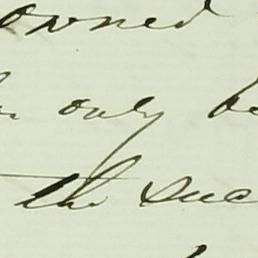 owned
only be
the suc